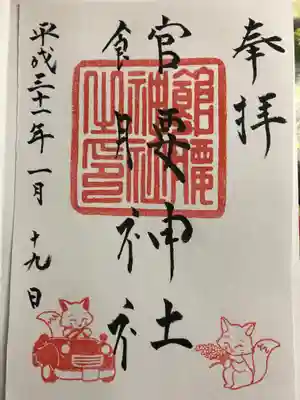 奉拝
館腰神社
館腰
神社
之印
平成三十一年一月十九日